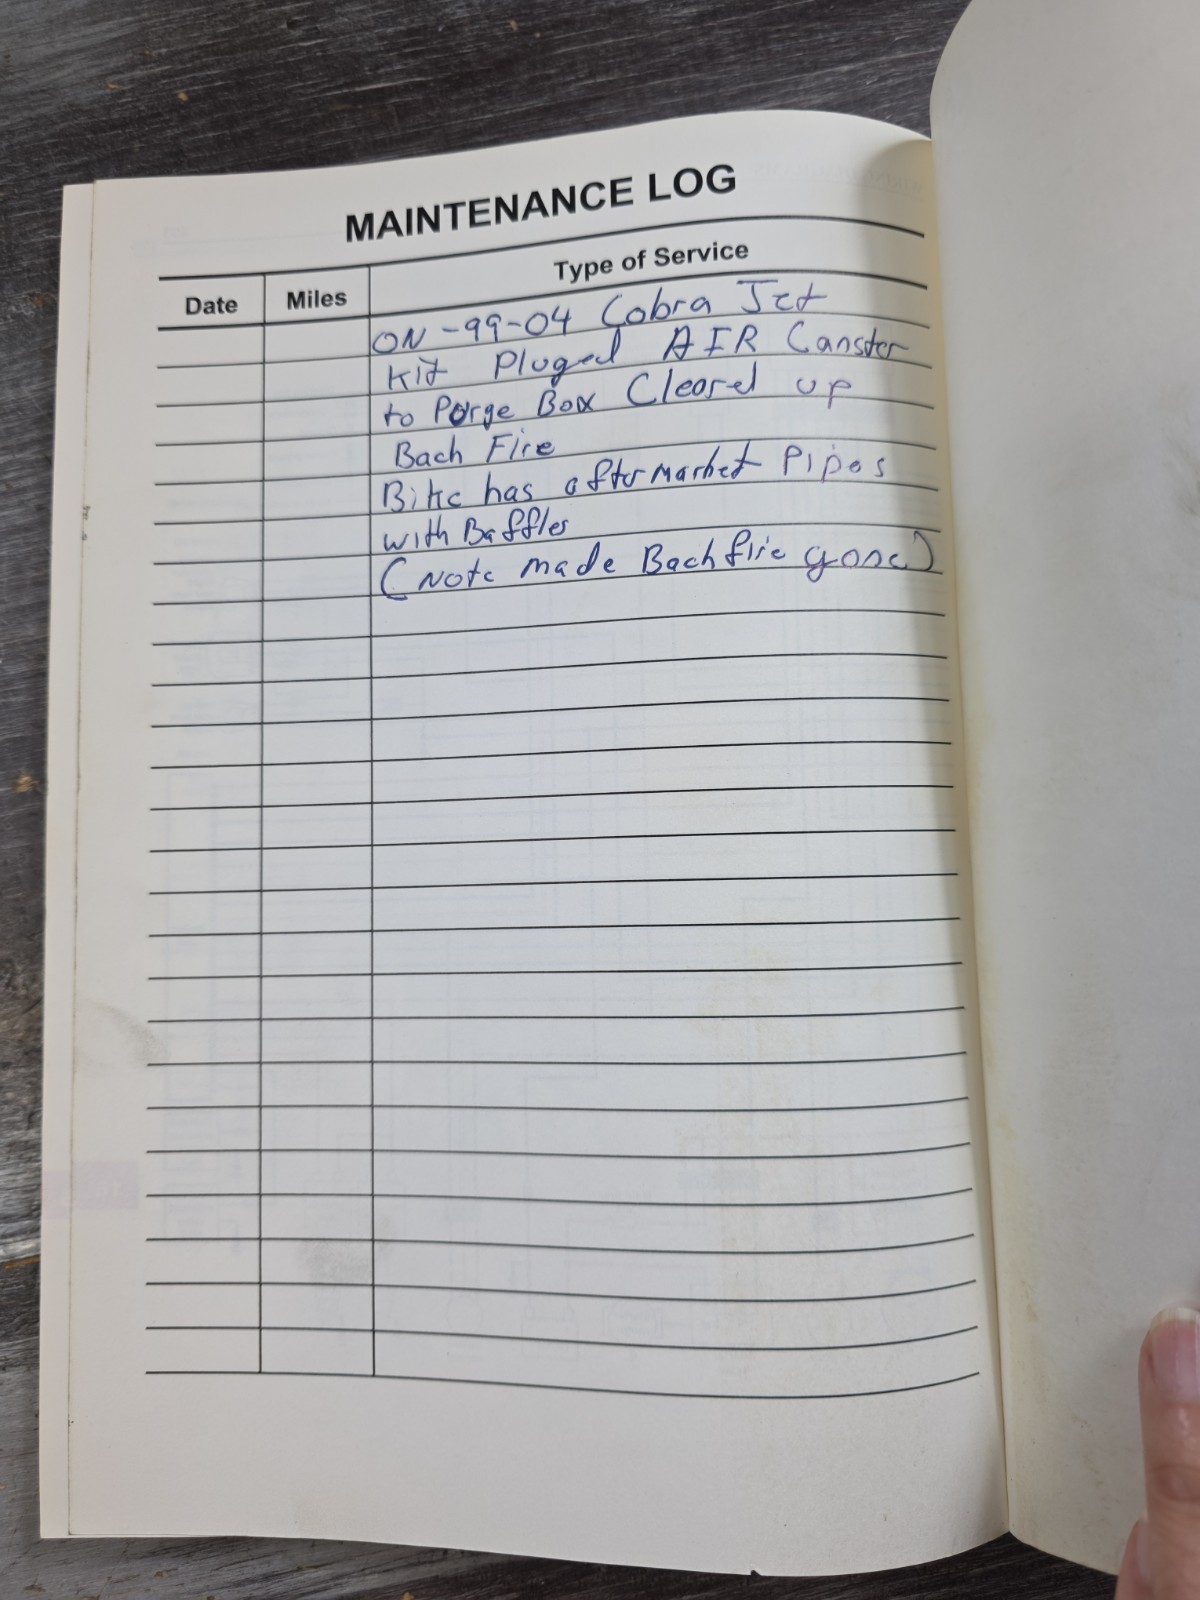 MAINTENANCE LOG
Date Miles Type of Service
ON -99-04 Cobra Jet
Kit Pluged AIR Canster
to Porge Box Cleared up
Bach Fire
Bike has aftermarket Pipes
with Baffles
(Note made Bachfire gone)